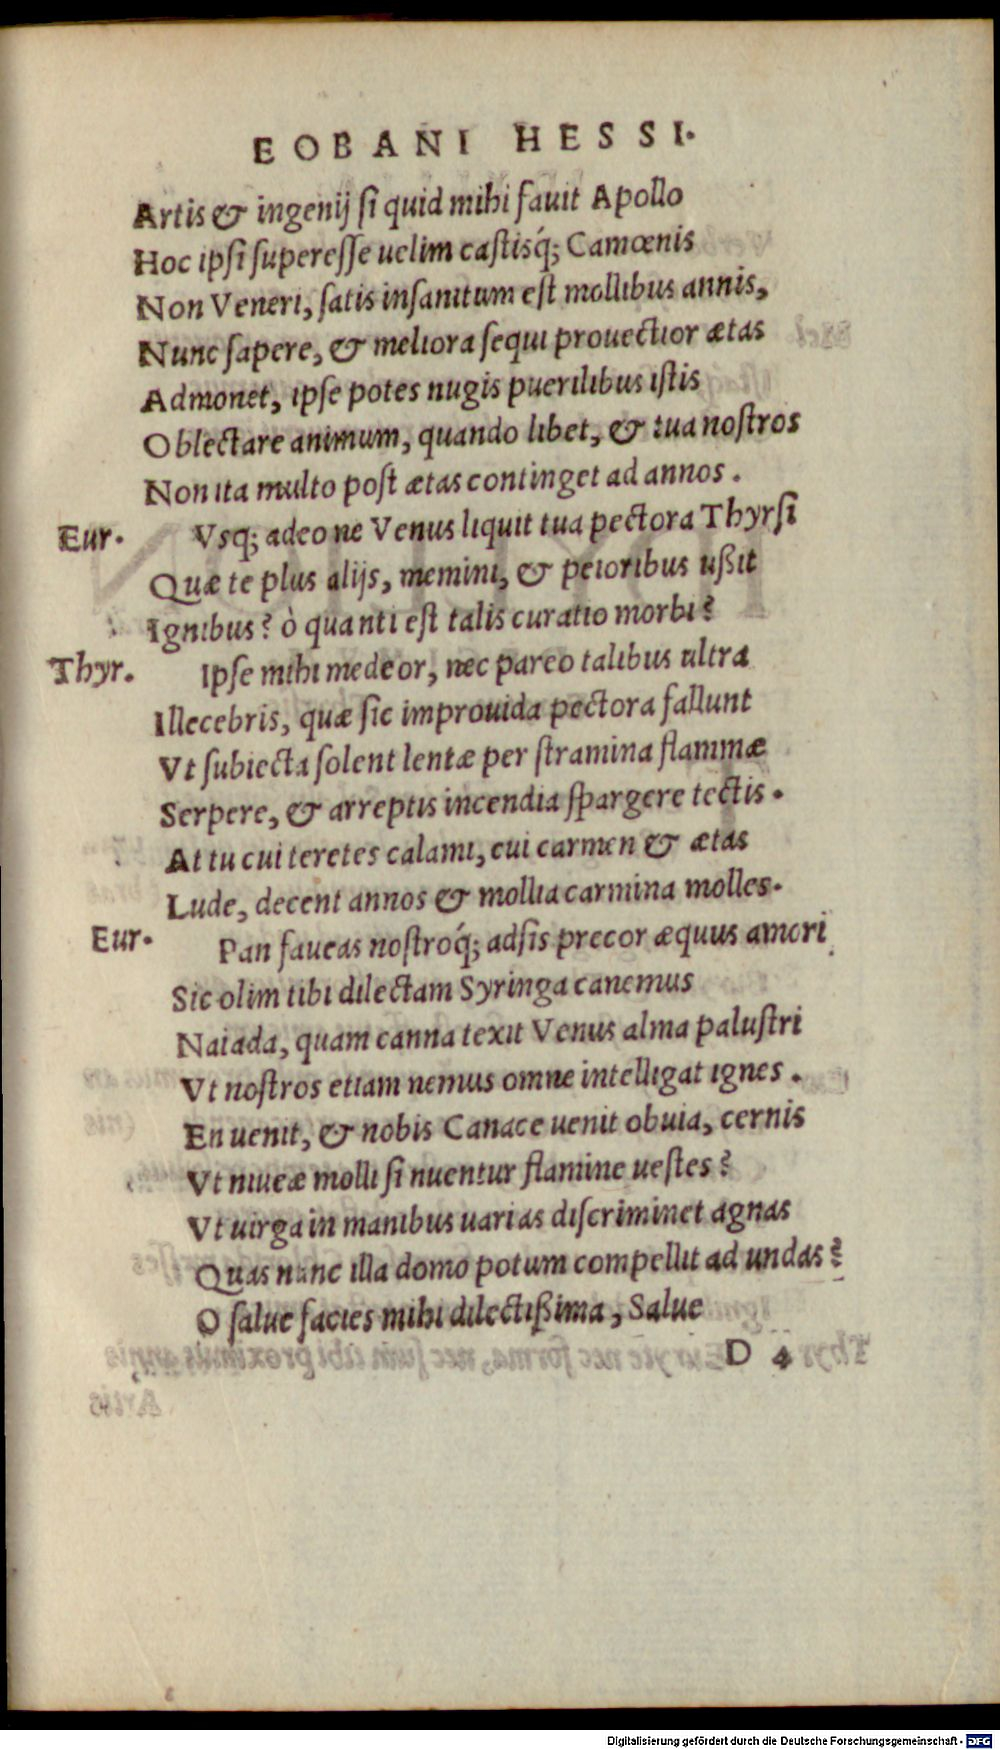 EOBANI HESSI.
Artis & ingenij ſi quid mihi fauit Apollo
Hoc ipſi ſupereſſe uelim caſtisq́; Camœnis
Non Veneri, ſatis inſanitum eſt mollibus annis,
Nunc ſapere, & meliora ſequi prouectior ætas
Admonet, ipſe potes nugis puerilibus iſtis
Oblectare animum, quando libet, & tua noſtros
Non ita multo poſt ætas continget ad annos.
Eur. Vsq; adeo ne Venus liquit tua pectora Thyrſi
Quæ te plus alijs, memini, & peioribus ußit
Ignibus? ò quanti eſt talis curatio morbi?
Thyr. Ipſe mihi medeor, nec pareo talibus ultra
Illecebris, quæ ſic improuida pectora fallunt
Vt ſubiecta ſolent lentæ per ſtramina flammæ
Serpere, & arreptis incendia ſpargere tectis.
At tu cui teretes calami, cui carmen & ætas
Lude, decent annos & mollia carmina molles.
Eur. Pan faueas noſtroq́; adſis precor æquus amori
Sic olim tibi dilectam Syringa canemus
Naiada, quam canna texit Venus alma paluſtri
Vt noſtros etiam nemus omne intelligat ignes.
En uenit, & nobis Canace uenit obuia, cernis
Vt niueæ molli ſinuentur flamine ueſtes?
Vt uirga in manibus uarias diſcriminet agnas
Quas nunc illa domo potum compellit ad undas?
O ſalue facies mihi dilectißima, Salue
D 4
Digitalisierung gefördert durch die Deutsche Forschungsgemeinschaft - DFG